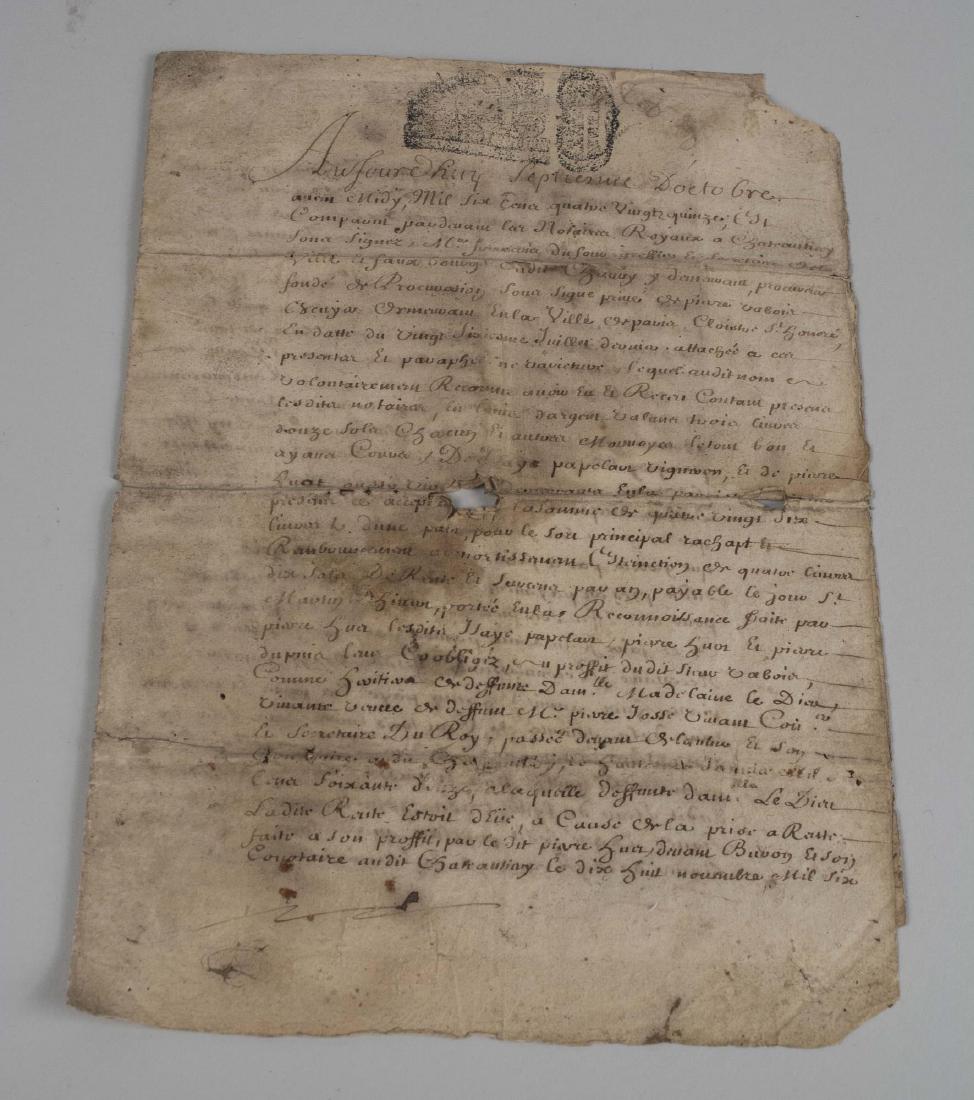 Aujourdhuy Septiesme D'octobre
avan Midy, Mil Six Cens quatre Vingtz quinze, Est
Comparu pardevant les Nottaires Royaux a Chateautiery
Sous Signez, Me
ville et faux bourgs dudit Chaury y demeurant, procureur
fondé de Procuration Sous Signe privé de pierre Vabois
demeurant En la Ville de paris, Cloistre St. Honoré,
En datte du vingt Sixiesme Juillet dernier attachée a ces
presentes Et paraphé ne varietur, lequel audit nom a
Volontairement Reconnu avoir Eu Et Receu Contant presens
lesdits notaires, En Louis d'argent valans trois livres
douze Sols Chacun Et autres Monnoyes le tout bon Et
ayans Cours, D papelart vigneron, Et de pierre
Huat En la
present ce accept la Somme de quatre vingt dix
livres d'une part, pour le Sort principal rachapt Et
Rembouscement amortissement Extinction de quatre livres
dix Sols De Rente Et Surcens par an, payable le jour St.
Martin d'hiver, portée En la Reconnoissance faite par
pierre Huet lesdits Isaye papelart, pierre Huet Et pierre
dupuis leurs Coobligéz, au proffit dudit Sieur Vabois,
Comme heritier de deffunte Damlle Madelaine le Dieu
Vivante veuve de deffunt Me. pierre Josse vivant Conr.
Et Secretaire Du Roy, passée devant Et Son
Connotaire audit le
Cens Soixante a laquelle deffunte damlle Le Dieu
Ladite Rente Estoit Deüe, a Cause de la prise a Rente
faite a Son proffit, par le dit pierre Huet, devant Buvon Et Son
Connotaire audit Chateautiery le dix huit novembre Mil Six